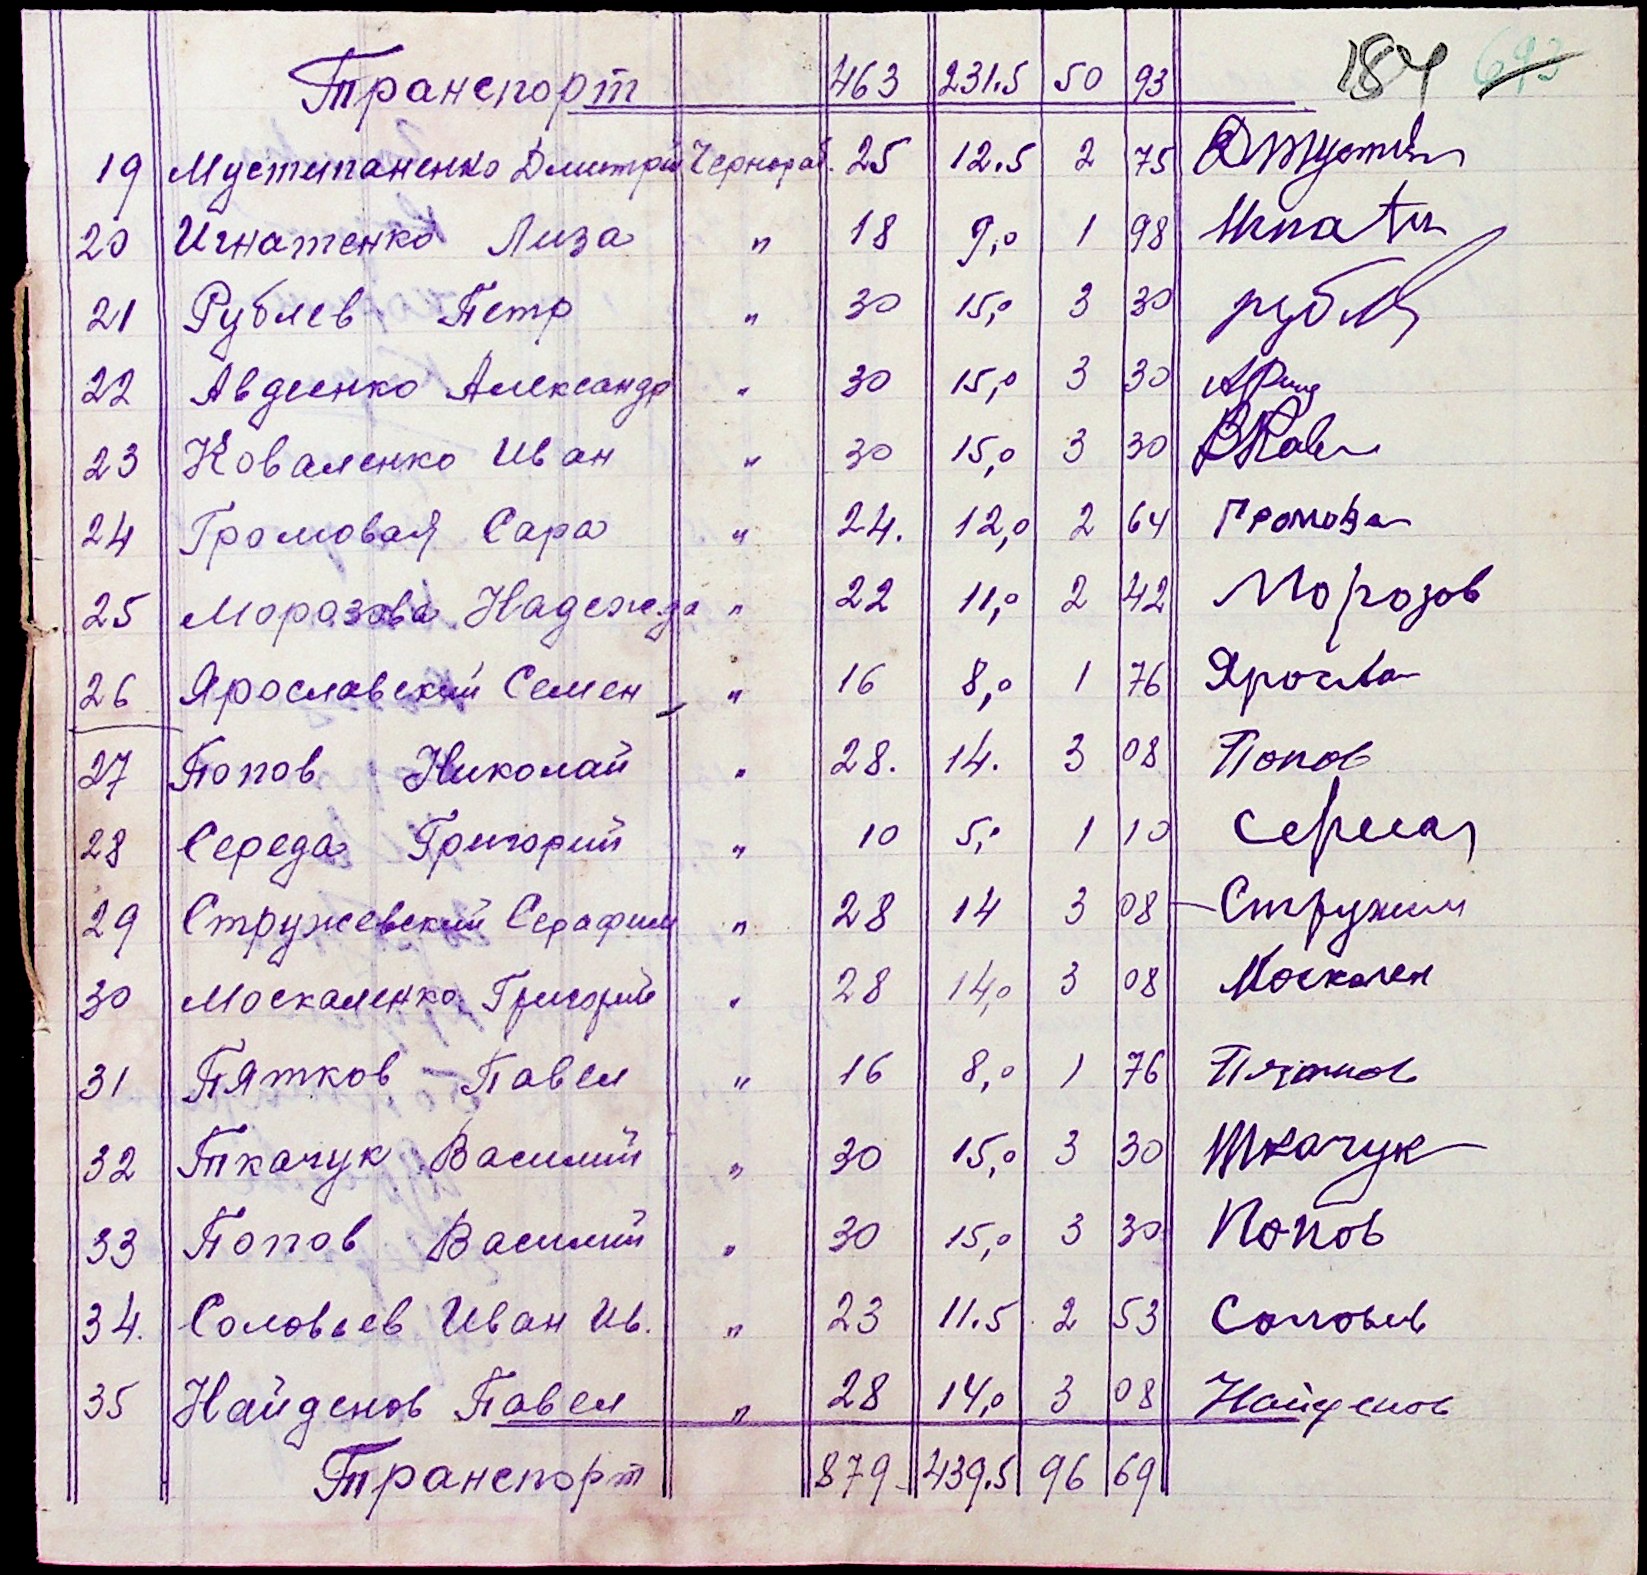 184 693
Транспорт 463 231.5 50 93
19 Мустипаненко Дмитрий Чернораб. 25 12.5 2 75
20 Игнатенко Лиза " 18 9,0 1 98
21 Рублев Петр " 30 15,0 3 30
22 Авдеенко Александр " 30 15,0 3 30
23 Коваленко Иван " 30 15,0 3 30
24 Громовая Сара " 24. 12,0 2 64 Громова
25 Морозова Надежда " 22 11,0 2 42 Морозов
26 Ярославский Семен " 16 8,0 1 76 Яросла
27 Попов Николай " 28. 14. 3 08 Попов
28 Середа Григорий " 10 5,0 1 10
29 Стружевский Серафим " 28 14 3 08
30 Москаленко Григорий " 28 14,0 3 08 Москален
31 Пятков Павел " 16 8,0 1 76
32 Ткачук Василий " 30 15,0 3 30 Ткачук
33 Попов Василий " 30 15,0 3 30 Попов
34. Соловьев Иван Ив. " 23 11.5 2 53 Соловьев
35 Найденов Павел " 28 14,0 3 08 Найденов
Транспорт 879 439.5 96 69